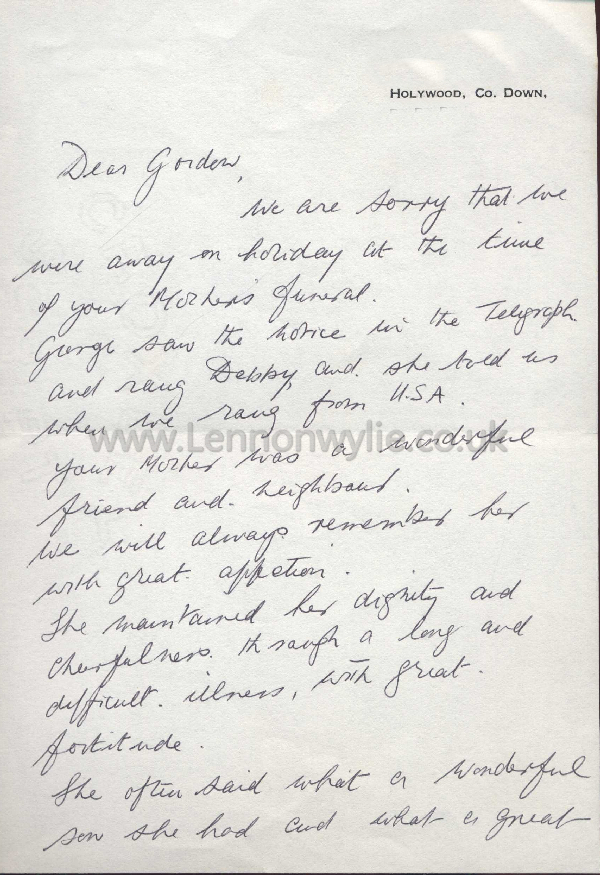 HOLYWOOD, CO. DOWN,
Dear Gordon,
We are sorry that we
were away on holiday at the time
of your Mother's funeral.
George saw the notice in the Telegraph.
and rang Debby, and she told us
when we rang from U.S.A.
www.Lennonwylie.co.uk
Your Mother was a wonderful
friend and neighbour.
We will always remember her
with great affection.
She maintained her dignity and
cheerfulness through a long and
difficult illness, with great
fortitude.
She often said what a wonderful
son she had and what a great